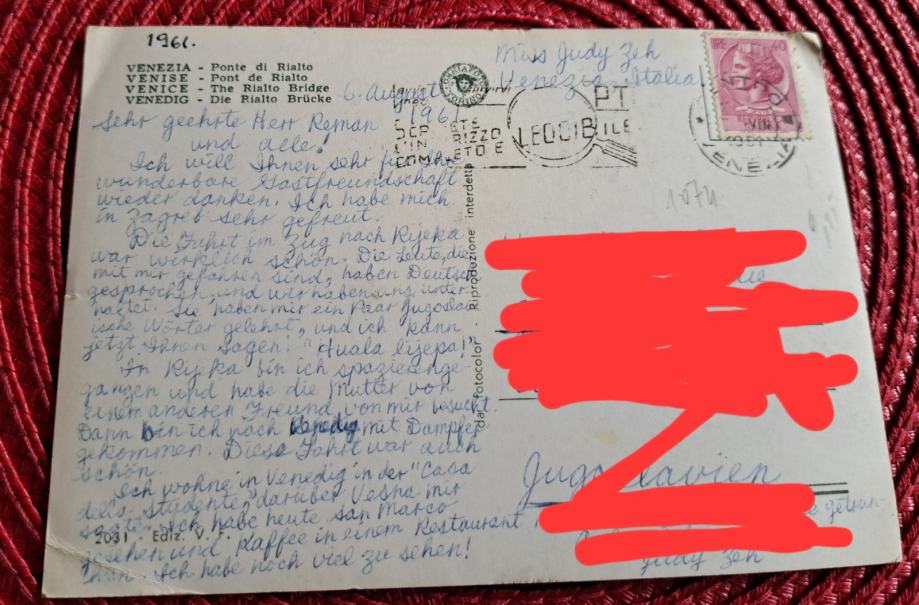 1961.
VENEZIA - Ponte di Rialto
VENISE - Pont de Rialto
VENICE - The Rialto Bridge
VENEDIG - Die Rialto Brücke
Miss Judy Zeh
Venezia, Italia
6. August
1961
Sehr geehrte Herr Reman
und alle!
Ich will Ihnen sehr für Ihre
wunderbare Gastfreundschaft
wieder danken. Ich habe mich
in Zagreb sehr gefreut.
Die Fahrt im Zug nach Rijeka
war wirklich schön. Die Leute, die
mit mir gefahren sind, haben Deutsch
gesprochen, und wir haben uns unter-
haltet. Sie haben mir ein Paar Jugosla-
ische Wörter gelehrt, und ich kann
jetzt Ihnen sagen: "Huala lijepa!"
In Rijeka bin ich spazierenge-
gangen und habe die Mutter von
einem anderen Freund von mir besucht.
Dann bin ich nach Venedig mit Dampfer
gekommen. Diese Fahrt war auch
schön.
Ich wohne in Venedig in der "Casa
dello studente" darüber Vesna mir
sagte. Ich habe heute San Marco
gesehen und Kaffee in einem Restaurant
getrun-
Ich habe noch viel zu sehen!
Judy Zeh
2031 - Ediz. V. F.
dal fotocolor - Riproduzione interdetta
LEGGIBILE
PT
VENEZIA
1074
Jugoslavien